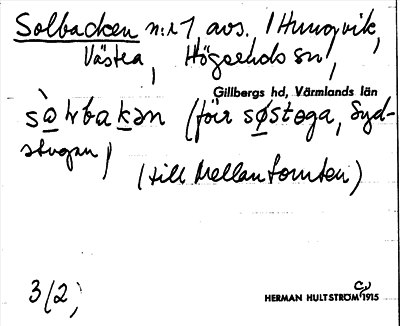 Solbacken n:r 1, avs. /Hungvik,
Västra, Högseruds sn,
Gillbergs hd, Värmlands län
(för søstøga, Syd-
stugan)
(till Mellantomten)
3/2,
HERMAN HULTSTRÖM 1915